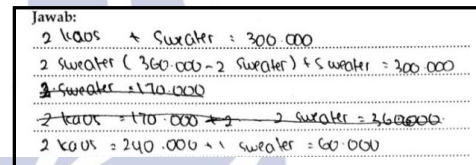 Jawab:
2 kaos + Sweater : 300.000
2 sweater (360.000-2 sweater) + sweater = 300.000
2 Sweater = 170.000
2 kaos = 170.000 + 2 - 2 sweater = 360000
2 kaos = 240.000 + 1 sweater = 60.000